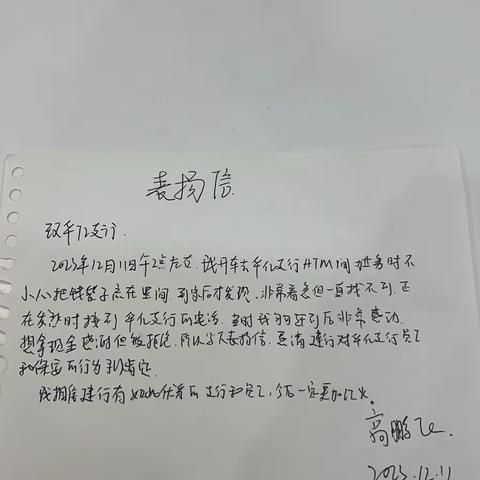 表扬信
平化支行:
2023年12月11日午2点左右,我开车去平化支行ATM间办业务时不
小心把钱袋子忘在里间,到家后才发现,非常着急但一直找不到,正
在发愁时接到平化支行的电话,当时我听到后非常感动,
想拿现金感谢但被拒绝,所以写下表扬信,恳请建行对平化支行员工
和保安的行为予以肯定。
我相信建行有如此优秀的支行和员工,今后一定更加红火。
高鹏飞
2023.12.11